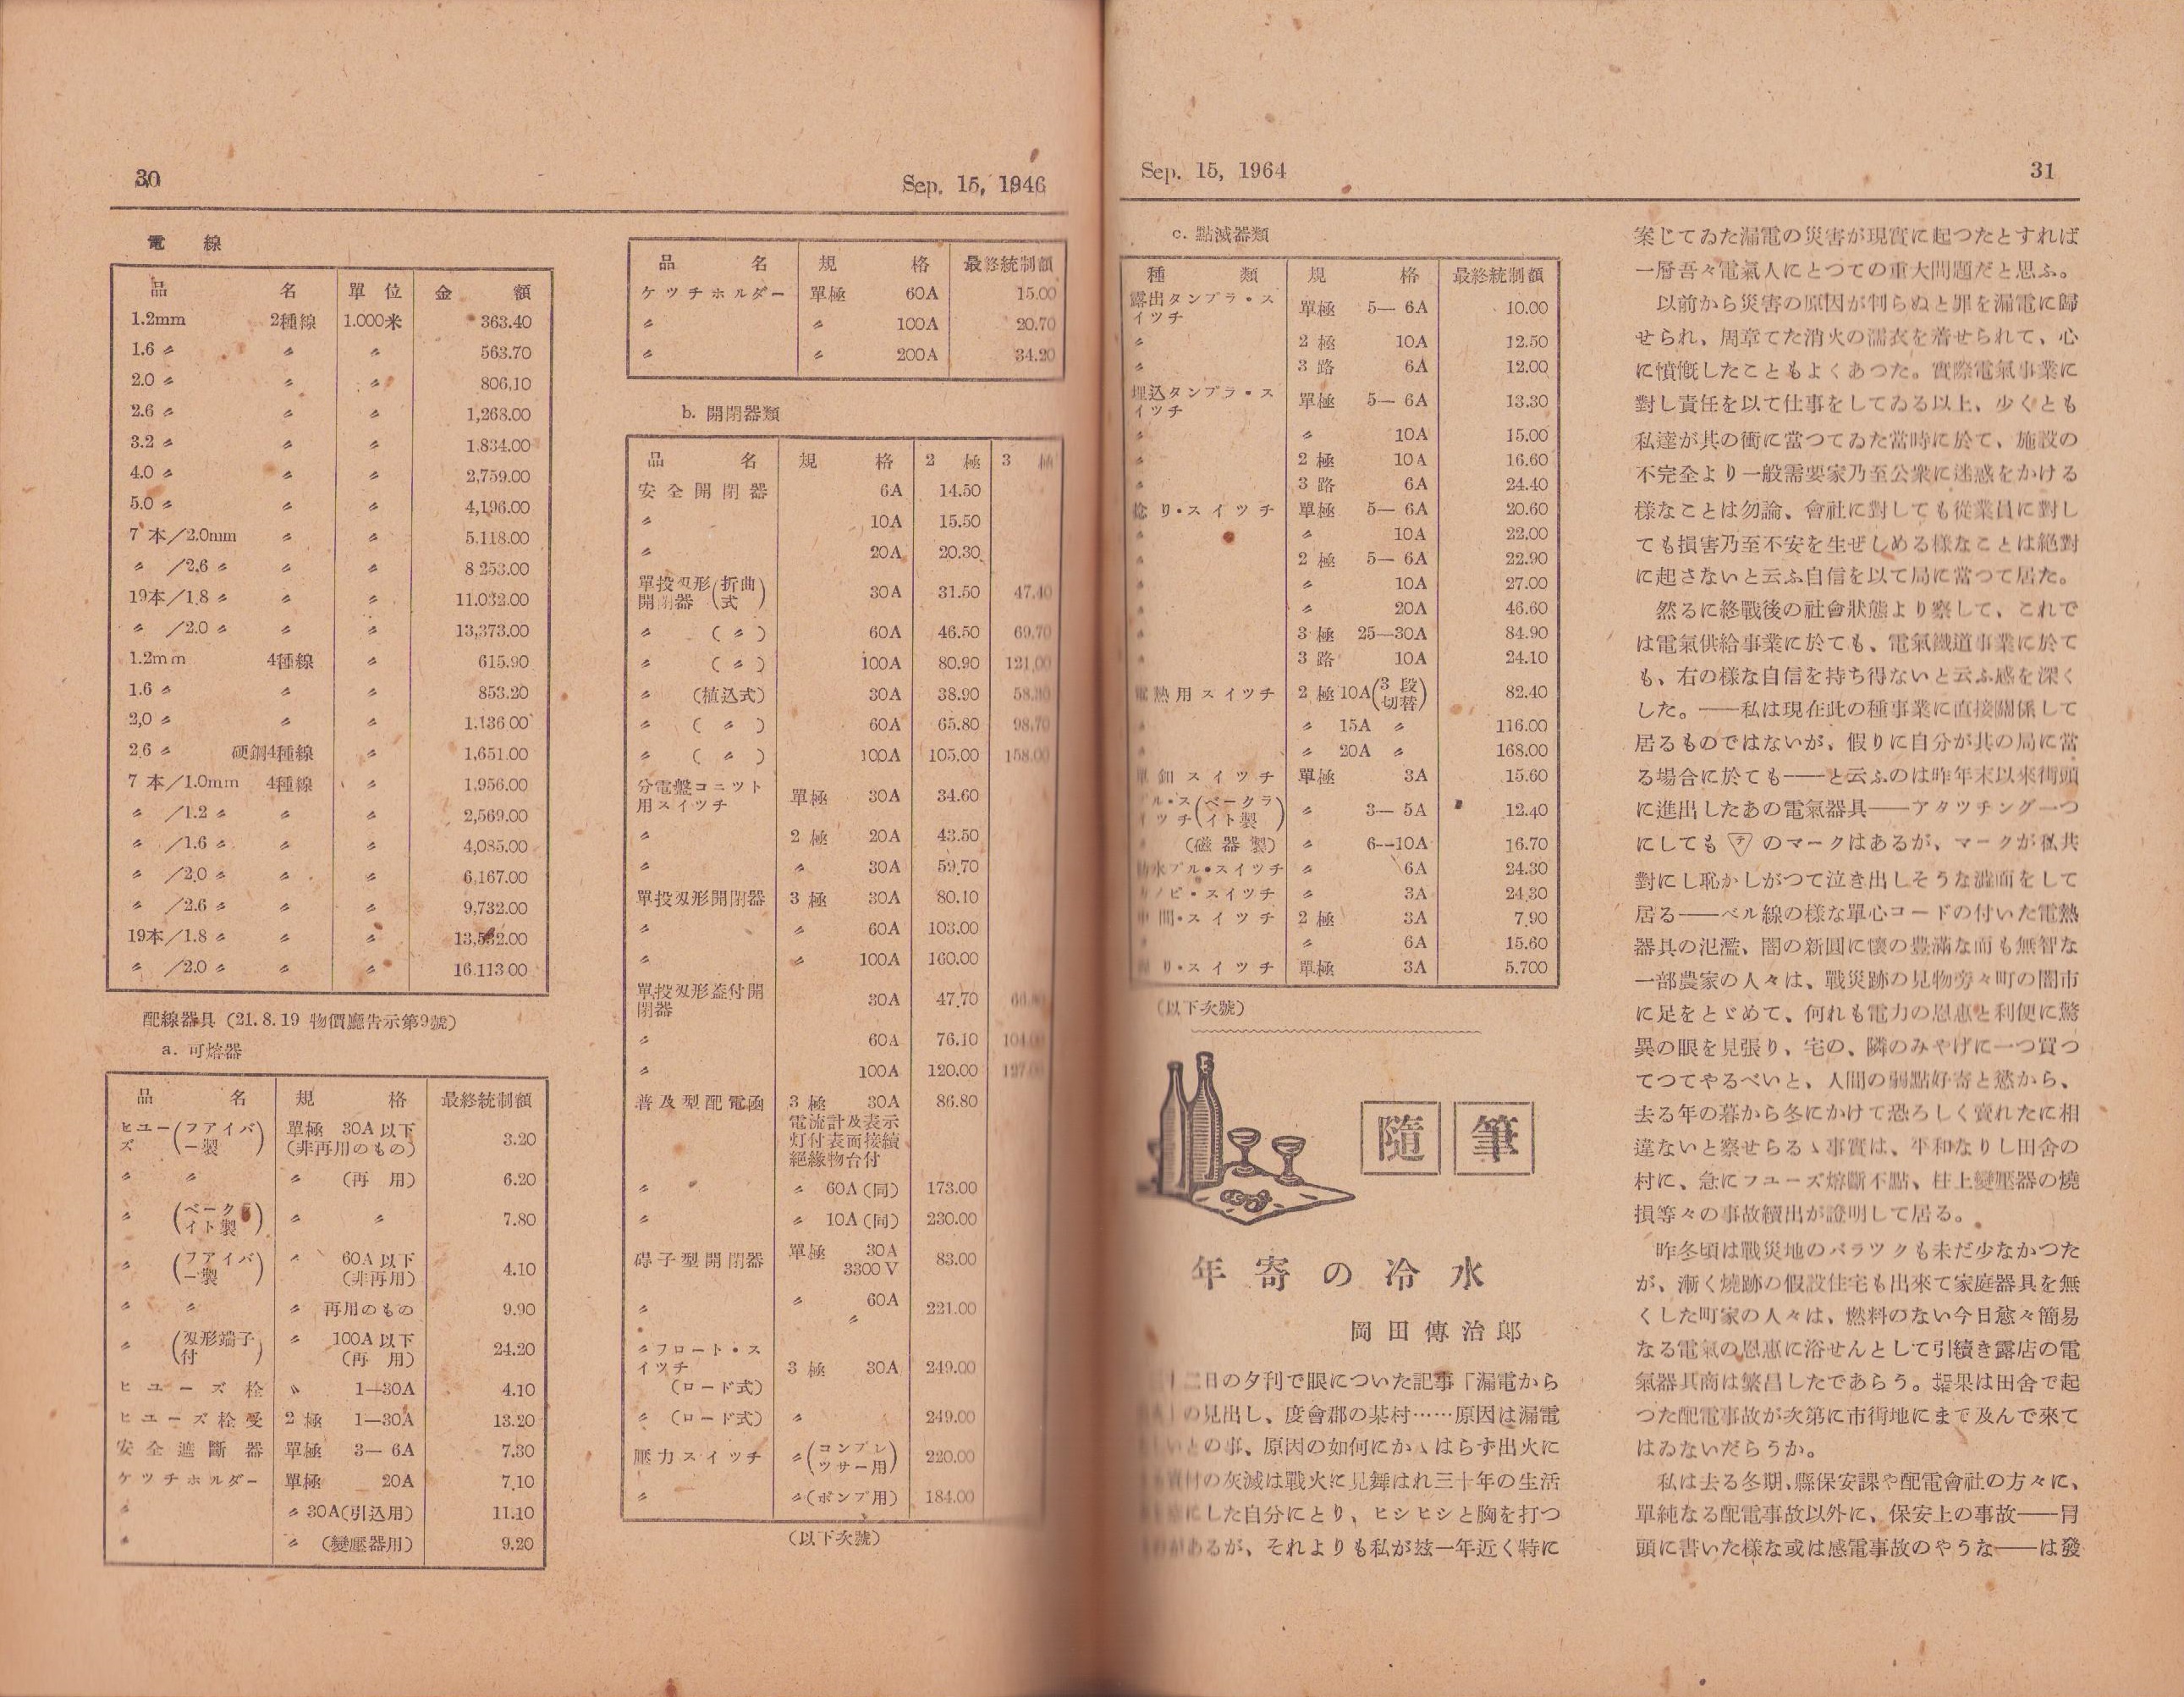 30
Sep. 15, 1946
電線
品名 單位 金額
1.2mm 2種線 1.000米 363.40
1.6〃 〃 〃 563.70
2.0〃 〃 〃 806.10
2.6〃 〃 〃 1,268.00
3.2〃 〃 〃 1.834.00
4.0〃 〃 〃 2,759.00
5.0〃 〃 〃 4,196.00
7本/2.0mm 〃 〃 5.118.00
〃 /2.6〃 〃 〃 8 253.00
19本/1.8〃 〃 〃 11.032.00
〃 /2.0〃 〃 〃 13,373.00
1.2mm 4種線 〃 615.90
1.6〃 〃 〃 853.20
2,0〃 〃 〃 1.136 00
2.6〃 硬銅4種線 〃 1,651.00
7本/1.0mm 4種線 〃 1,956.00
〃 /1.2〃 〃 〃 2,569.00
〃 /1.6〃 〃 〃 4,085.00
〃 /2.0〃 〃 〃 6,167.00
〃 /2.6〃 〃 〃 9,732.00
19本/1.8〃 〃 〃
〃 /2.0〃 〃 〃 16.113 00
配線器具(21.8.19 物價廳告示第9號)
a. 可熔器
品名 規格 最終統制額
ヒユーズ(フアイバー製) 單極 30A以下(非再用のもの) 3.20
〃 〃 〃 (再用) 6.20
〃 (ベークライト製) 〃 〃 7.80
〃 (フアイバー製) 〃 60A以下(非再用) 4.10
〃 〃 〃 再用のもの 9.90
〃 (刄形端子付) 〃 100A以下(再用) 24.20
ヒユーズ栓 〃 1—30A 4.10
ヒユーズ栓受 2極 1—30A 13.20
安全遮斷器 單極 3—6A 7.30
ケツチホルダー 單極 20A 7.10
〃 〃30A(引込用) 11.10
〃 〃 (變壓器用) 9.20
品名 規格 最終統制額
ケツチホルダー 單極 60A 15.00
〃 〃 100A 20.70
〃 〃 200A 34.20
b. 開閉器類
品名 規格 2極 3極
安全開閉器 6A 14.50
〃 10A 15.50
〃 20A 20.30
單投刄形開閉器(折曲式) 30A 31.50 47.40
〃 (〃) 60A 46.50 69.70
〃 (〃) 100A 80.90 121.00
〃 (植込式) 30A 38.90
〃 (〃) 60A 65.80 98.70
〃 (〃) 100A 105.00 158.00
分電盤コニツト用スイツチ 單極 30A 34.60
〃 2極 20A 43.50
〃 〃 30A 59.70
單投刄形開閉器 3極 30A 80.10
〃 〃 60A 103.00
〃 〃 100A 160.00
單投刄形蓋付開閉器 30A 47.70
〃 60A 76.10
〃 100A 120.00
普及型配電凾 3極 30A 86.80
電流計及表示
灯付表面接續
絕緣物台付
〃 〃 60A(同) 173.00
〃 〃 10A(同) 230.00
碍子型開閉器 單極 30A 3300V 83.00
〃 〃 60A 〃 221.00
〃フロート・スイツチ(ロード式) 3極 30A 249.00
〃 (ロード式) 〃 249.00
壓力スイツチ 〃(コンプレツサー用) 220.00
〃 〃(ポンプ用) 184.00
(以下次號)
Sep. 15, 1964
31
c. 點滅器類
種類 規格 最終統制額
露出タンブラ・スイツチ 單極 5—6A 10.00
〃 2極 10A 12.50
〃 3路 6A 12.00
埋込タンブラ・スイツチ 單極 5—6A 13.30
〃 〃 10A 15.00
〃 2極 10A 16.60
〃 3路 6A 24.40
捻り・スイツチ 單極 5—6A 20.60
〃 〃 10A 22.00
〃 2極 5—6A 22.90
〃 〃 10A 27.00
〃 〃 20A 46.60
〃 3極 25—30A 84.90
〃 3路 10A 24.10
電熱用スイツチ 2極10A(3段切替) 82.40
〃 〃 15A 〃 116.00
〃 〃 20A 〃 168.00
釦スイツチ 單極 3A 15.60
ル・スイツチ(ベークライト製) 〃 3—5A 12.40
(磁器製) 〃 6--10A 16.70
防水プル・スイツチ 〃 6A 24.30
カノピ・スイツチ 〃 3A 24.30
中間・スイツチ 2極 3A 7.90
〃 〃 6A 15.60
り・スイツチ 單極 3A 5.700
(以下次號)
隨筆
年寄の冷水
岡田傳治郎
十二日の夕刊で眼についた記事「漏電から
の見出し、度會郡の某村……原因は漏電
いとの事、原因の如何にかゝはらず出火に
の灰滅は戰火に見舞はれ三十年の生活
にした自分にとり、ヒシヒシと胸を打つ
があるが、それよりも私が玆一年近く特に
案じてゐた漏電の災害が現實に起つたとすれば
一層吾々電氣人にとつての重大問題だと思ふ。
以前から災害の原因が判らぬと罪を漏電に歸
せられ、周章てた消火の濡衣を着せられて、心
に憤慨したこともよくあつた。實際電氣事業に
對し責任を以て仕事をしてゐる以上、少くとも
私達が其の衝に當つてゐた當時に於て、施設の
不完全より一般需要家乃至公衆に迷惑をかける
樣なことは勿論、會社に對しても從業員に對し
ても損害乃至不安を生ぜしめる樣なことは絕對
に起さないと云ふ自信を以て局に當つて居た。
然るに終戰後の社會狀態より察して、これで
は電氣供給事業に於ても、電氣鐵道事業に於て
も、右の樣な自信を持ち得ないと云ふ感を深く
した。——私は現在此の種事業に直接關係して
居るものではないが、假りに自分が其の局に當
る場合に於ても——と云ふのは昨年末以來街頭
に進出したあの電氣器具——アタツチング一つ
にしても▽テのマークはあるが、マークが私共
對にし恥かしがつて泣き出しそうな澁面をして
居る——ベル線の樣な單心コードの付いた電熱
器具の氾濫、闇の新圓に懷の豊滿な而も無智な
一部農家の人々は、戰災跡の見物旁々町の闇市
に足をとゞめて、何れも電力の恩惠と利便に驚
異の眼を見張り、宅の、隣のみやげに一つ買つ
てつてやるべいと、人間の弱點好寄と慾から、
去る年の暮から冬にかけて恐ろしく賣れたに相
違ないと察せらるゝ事實は、平和なりし田舍の
村に、急にフユーズ熔斷不點、柱上變壓器の燒
損等々の事故續出が證明して居る。
昨冬頃は戰災地のバラツクも未だ少なかつた
が、漸く燒跡の假設住宅も出來て家庭器具を無
くした町家の人々は、燃料のない今日愈々簡易
なる電氣の恩惠に浴せんとして引續き露店の電
氣器具商は繁昌したであらう。結果は田舍で起
つた配電事故が次第に市街地にまで及んで來て
はゐないだらうか。
私は去る冬期、縣保安課や配電會社の方々に、
單純なる配電事故以外に、保安上の事故——冐
頭に書いた樣な或は感電事故のやうな——は發